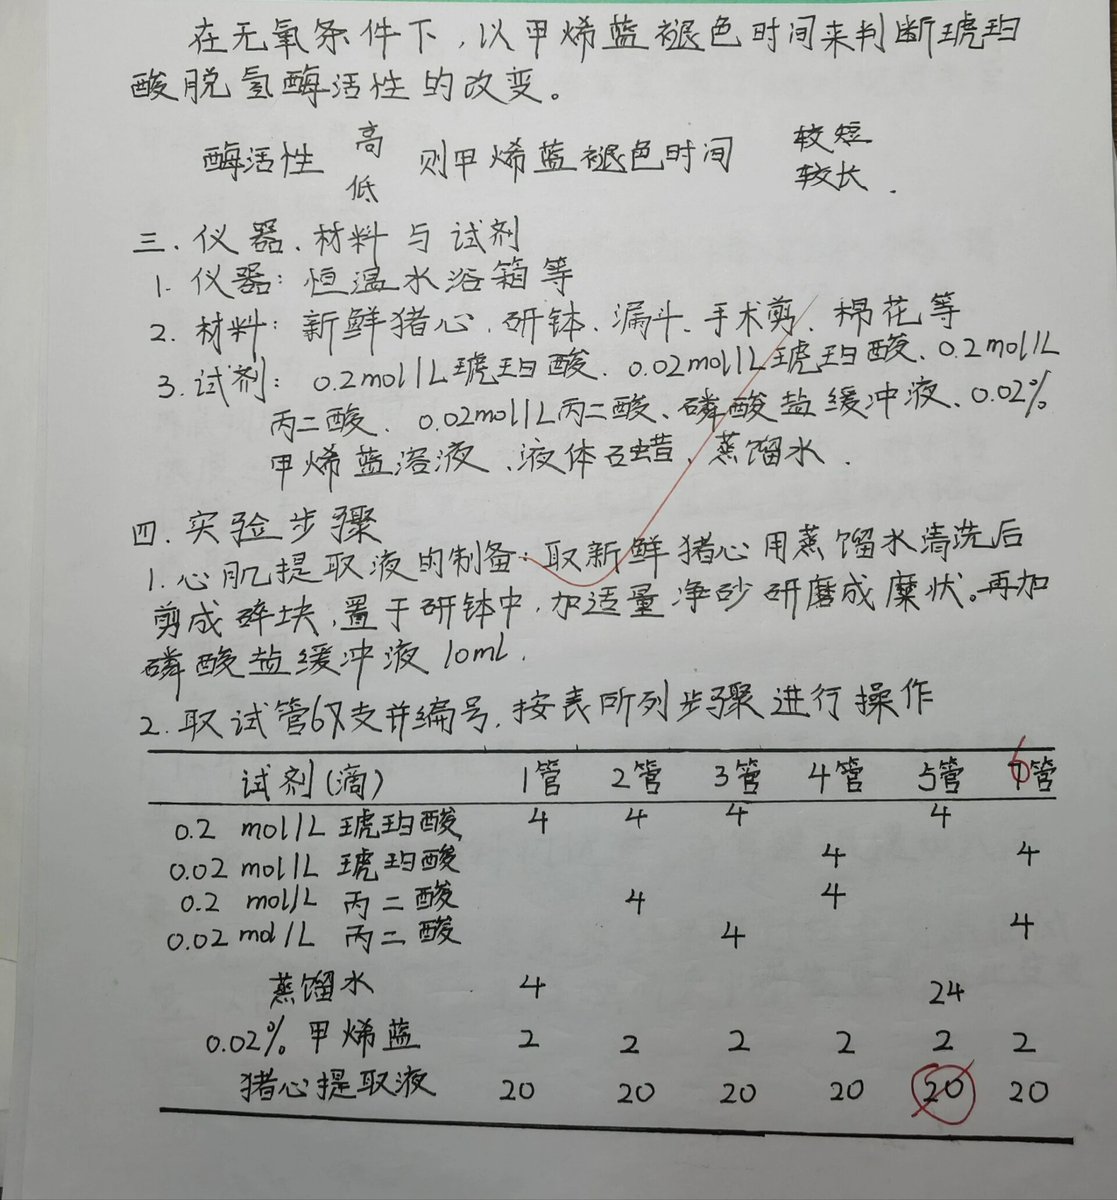 在无氧条件下，以甲烯蓝褪色时间来判断琥珀
酸脱氢酶活性的改变。
酶活性 高 低 则甲烯蓝褪色时间 较短 较长.
三.仪器、材料与试剂
1. 仪器：恒温水浴箱等
2. 材料：新鲜猪心、研钵、漏斗、手术剪、棉花等
3. 试剂：0.2mol/L琥珀酸、0.02mol/L琥珀酸、0.2mol/L
丙二酸、0.02mol/L丙二酸、磷酸盐缓冲液、0.02%
甲烯蓝溶液、液体石蜡、蒸馏水.
四.实验步骤
1. 心肌提取液的制备：取新鲜猪心用蒸馏水清洗后
剪成碎块,置于研钵中,加适量净砂研磨成糜状。再加
磷酸盐缓冲液10ml.
2. 取试管6支并编号,按表所列步骤进行操作
试剂(滴) 1管 2管 3管 4管 5管 6管
0.2 mol/L 琥珀酸 4 4 4 4
0.02 mol/L 琥珀酸 4 4
0.2 mol/L 丙二酸 4 4
0.02 mol/L 丙二酸 4 4
蒸馏水 4 24
0.02% 甲烯蓝 2 2 2 2 2 2
猪心提取液 20 20 20 20 20 20